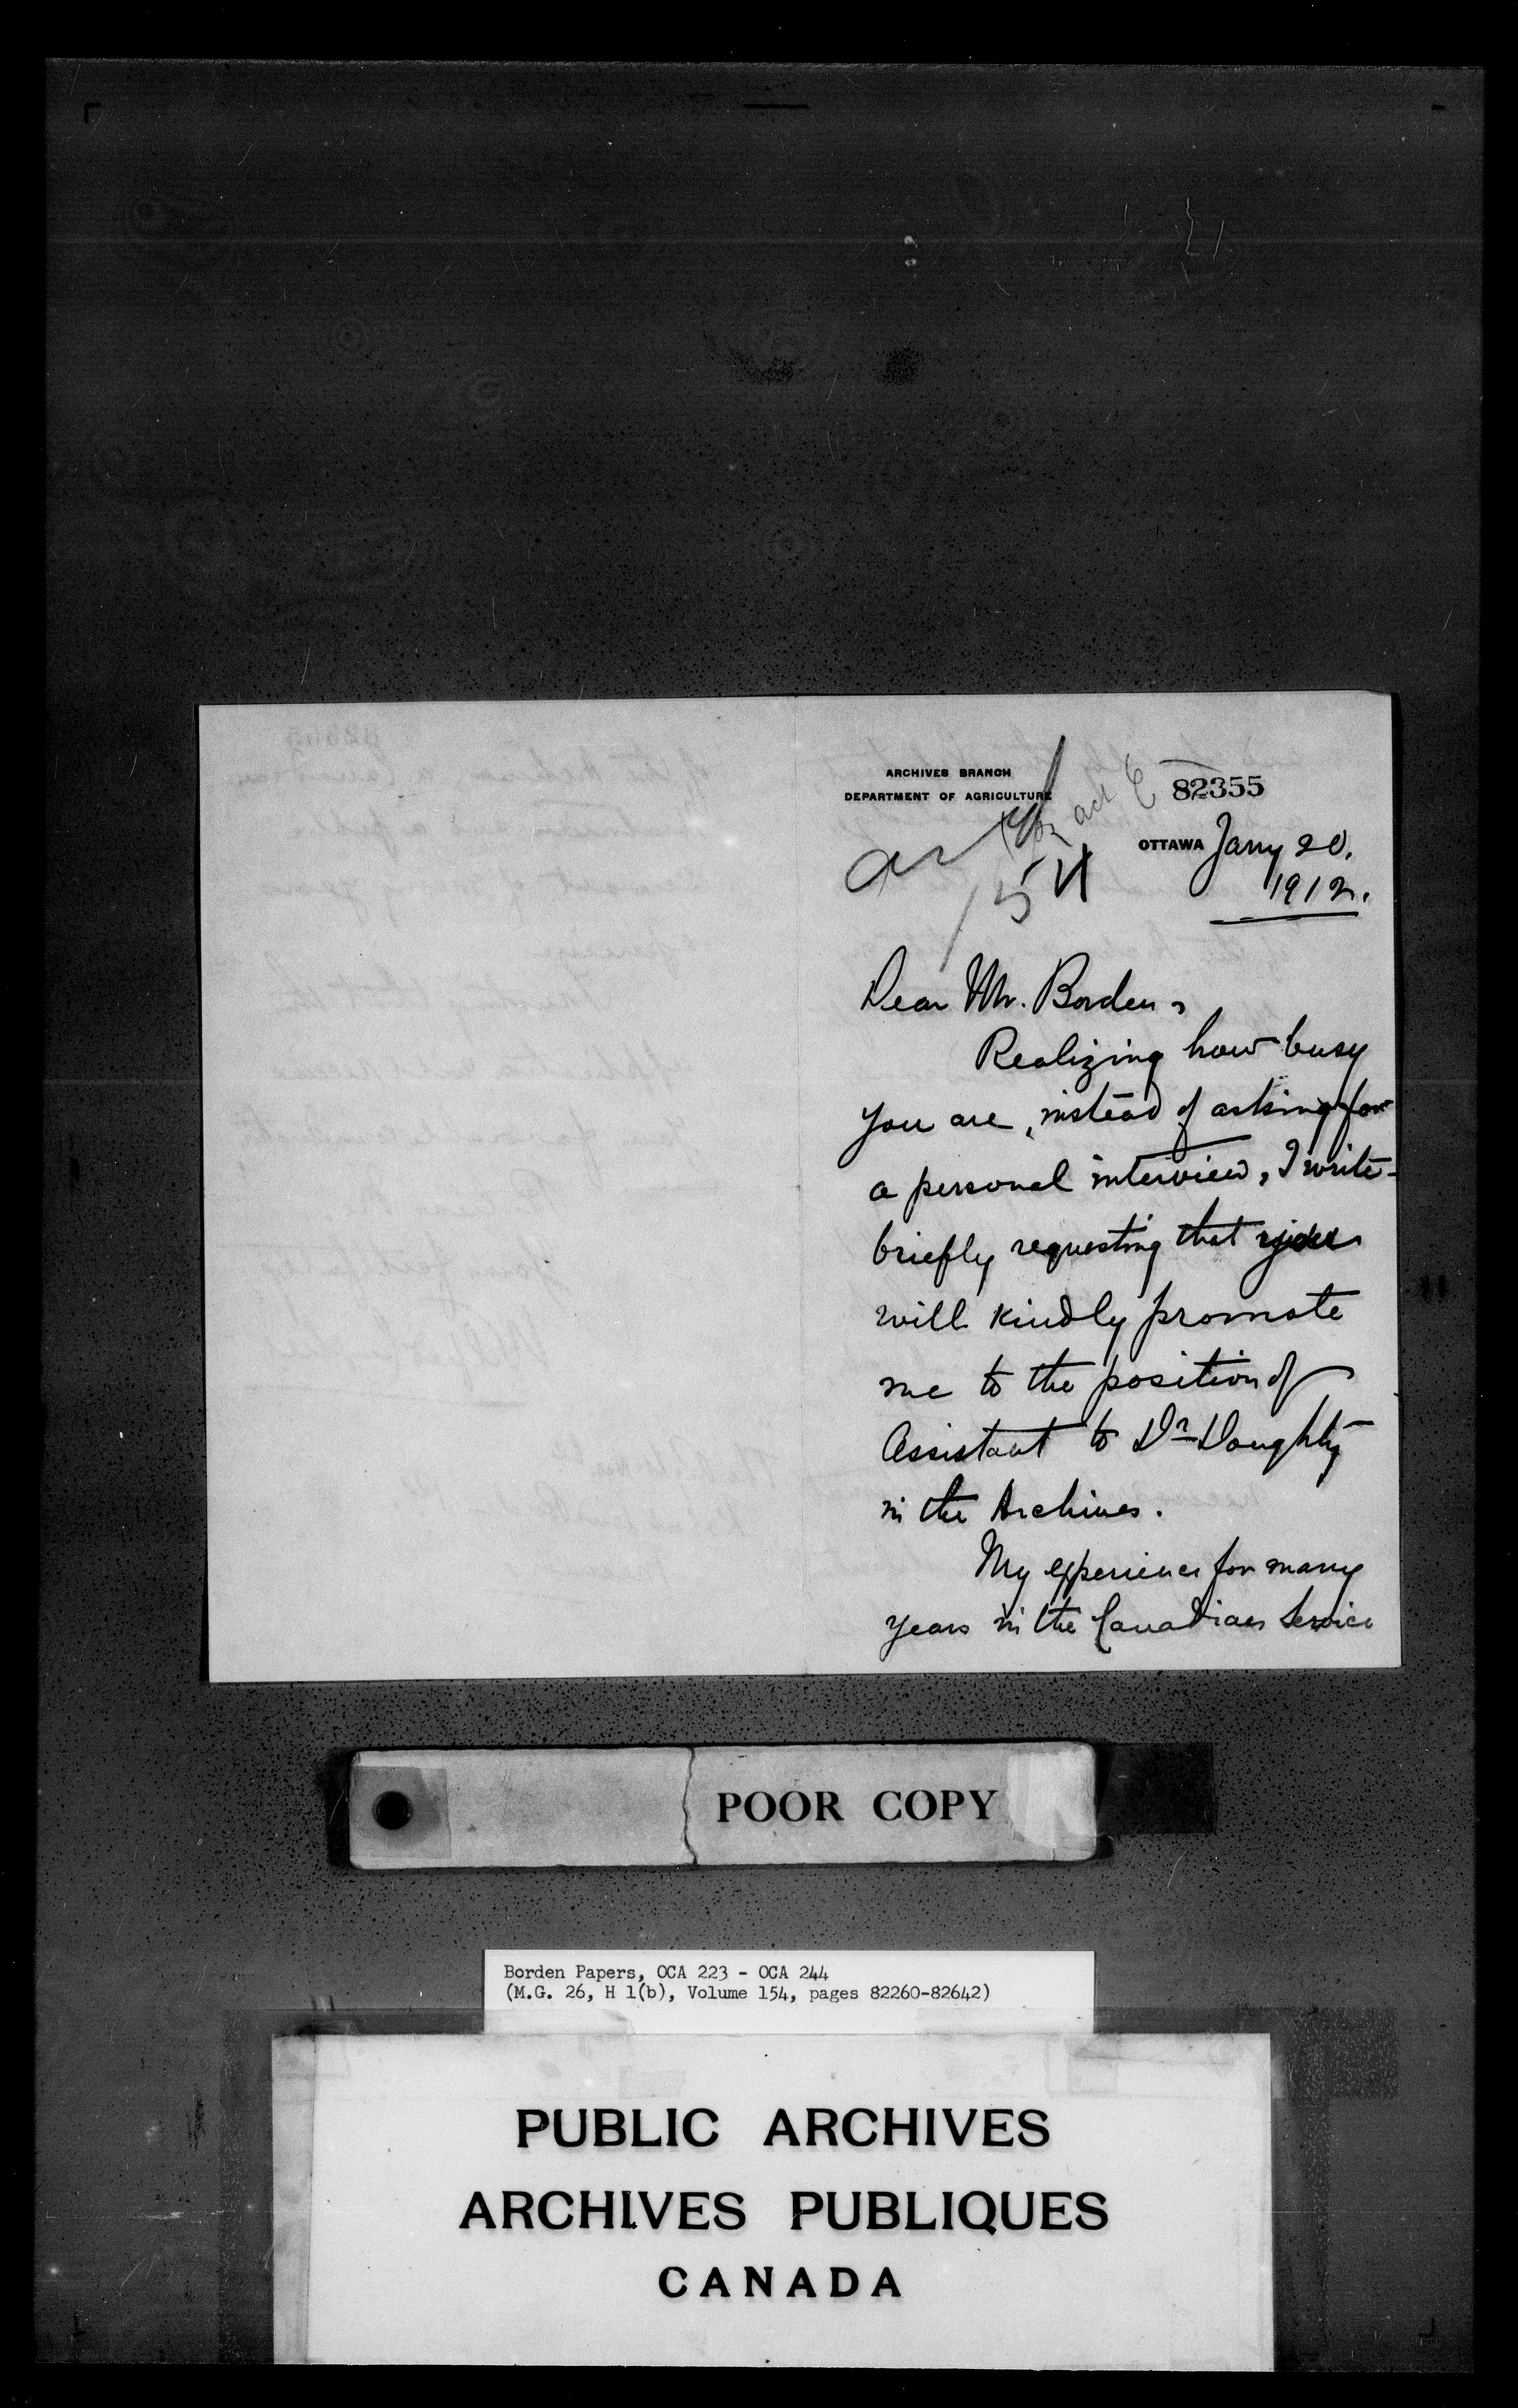 ARCHIVES BRANCH
DEPARTMENT OF AGRICULTURE
82355
OTTAWA Jany 20.
1912.
Dear Mr. Borden,
Realizing how busy
you are, instead of asking for
a personal interview, I write
briefly requesting that you
will kindly promote
me to the position of
Assistant to Dr Doughty
in the Archives.
My experience for many
years in the Canadian Service
POOR COPY
Borden Papers, OCA 223 - OCA 244
(M.G. 26, H 1(b), Volume 154, pages 82260-82642)
PUBLIC ARCHIVES
ARCHIVES PUBLIQUES
CANADA